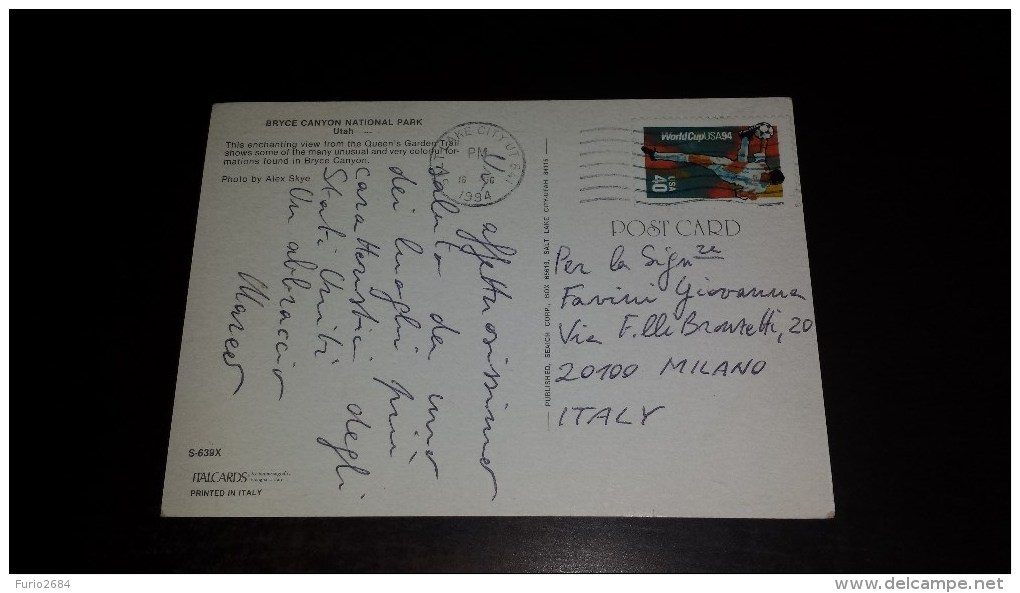 BRYCE CANYON NATIONAL PARK
Utah
This enchanting view from the Queen's Garden Trail
shows some of the many unusual and very colorful for-
mations found in Bryce Canyon.
Photo by Alex Skye
Un affettuosissimo
saluto da uno
dei luoghi più
caratteristici degli
Stati Uniti
Un abbraccio
Marco
S-639X
ITALCARDS
PRINTED IN ITALY
PUBLISHED, SEAICH CORP., BOX 65613, SALT LAKE CITY, UTAH 84115
LAKE CITY UT
PM
1994
WorldCupUSA94
40
USA
POST CARD
Per la Sign.ra
Favini Giovanna
Via F.lli Bronzetti, 20
20100 MILANO
ITALY
Furio2684
delcampe.net